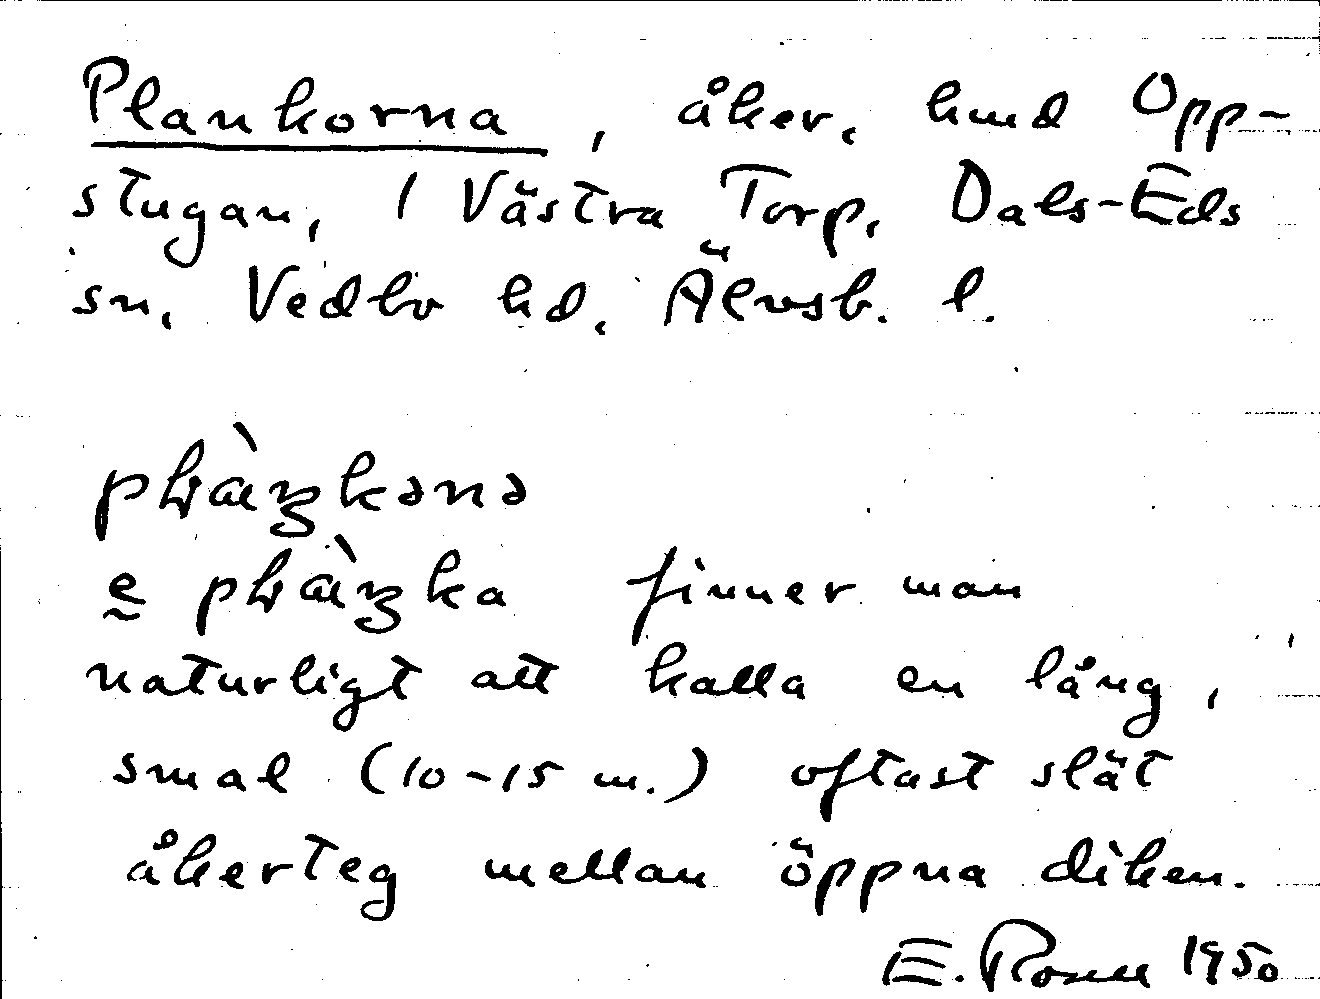 Plankorna, åker, hmd Opp-
stugan, 1 Västra Torp, Dals-Eds
sn, Vedbo hd, Älvsb. l.
finner man
naturligt att kalla en lång,
smal (10-15 m.) oftast slät
åkerteg mellan öppna diken.
E. Rosell 1950